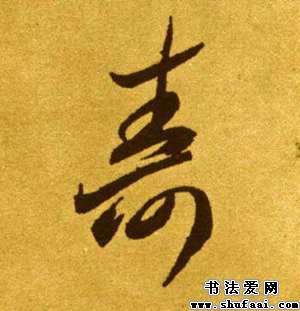 寿
书法爱网
www.shufaai.com